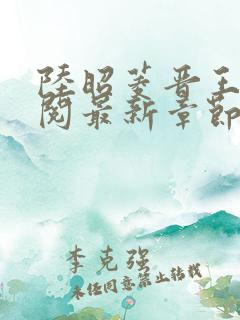 陸昭菱晋王
閱最新章節
李克强
未经同意禁止转载